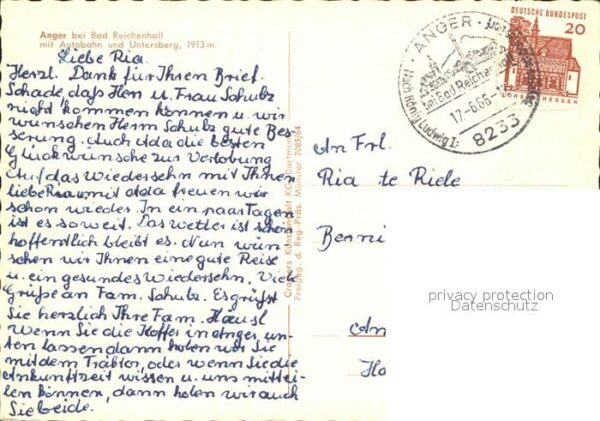 Anger bei Bad Reichenhall
mit Autobahn und Untersberg, 1913 m
Liebe Ria.
Herzl. Dank für Ihren Brief.
Schade, daß Herr u. Frau Schulz
nicht kommen können u. wir
wünschen Herrn Schulz gute Bes-
serung. Auch dda die besten
Glückwünsche zur Verlobung
Auf das Wiedersehn mit Ihnen
liebe Ria u. mit dda freuen wir
schon wieder. In ein paar Tagen
ist es soweit. Das Wetter ist schön
hoffentlich bleibt es. Nun wün-
schen wir Ihnen eine gute Reise
u. ein gesundes Wiedersehn. Viele
Grüße an Fam. Schulz. Es grüßt
Sie herzlich Ihre Fam. Häusl
Wenn Sie die Koffer in Anger un-
ten lassen dann holen wir Sie
mit dem Traktor, oder wenn Sie die
Ankunftzeit wissen u. uns mittei-
len können, dann holen wir auch
Sie beide.
Cramers Kunstanstalt KG, Dortmund
Freigeg. d. Reg.-Präs. Münster 7085/64
ANGER
bei Bad Reichenhall
Nach König Ludwig I:
17.-6.66-
8233
DEUTSCHE BUNDESPOST
20
LORSCH HESSEN
An Frl.
Ria te Riele
Berni
An
Ho
privacy protection
Datenschutz